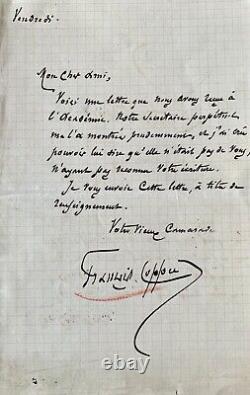 Vendredi.
Mon Cher Ami,
Voici une lettre que nous avons reçue à
l'Académie. Notre Secrétaire perpétuel
me l'a montrée prudemment, et j'ai cru
pouvoir lui dire qu'elle n'était pas de vous,
n'ayant pas reconnu votre écriture.
Je vous envoie cette lettre, à titre de
renseignement.
Votre vieux Camarade
François Coppée